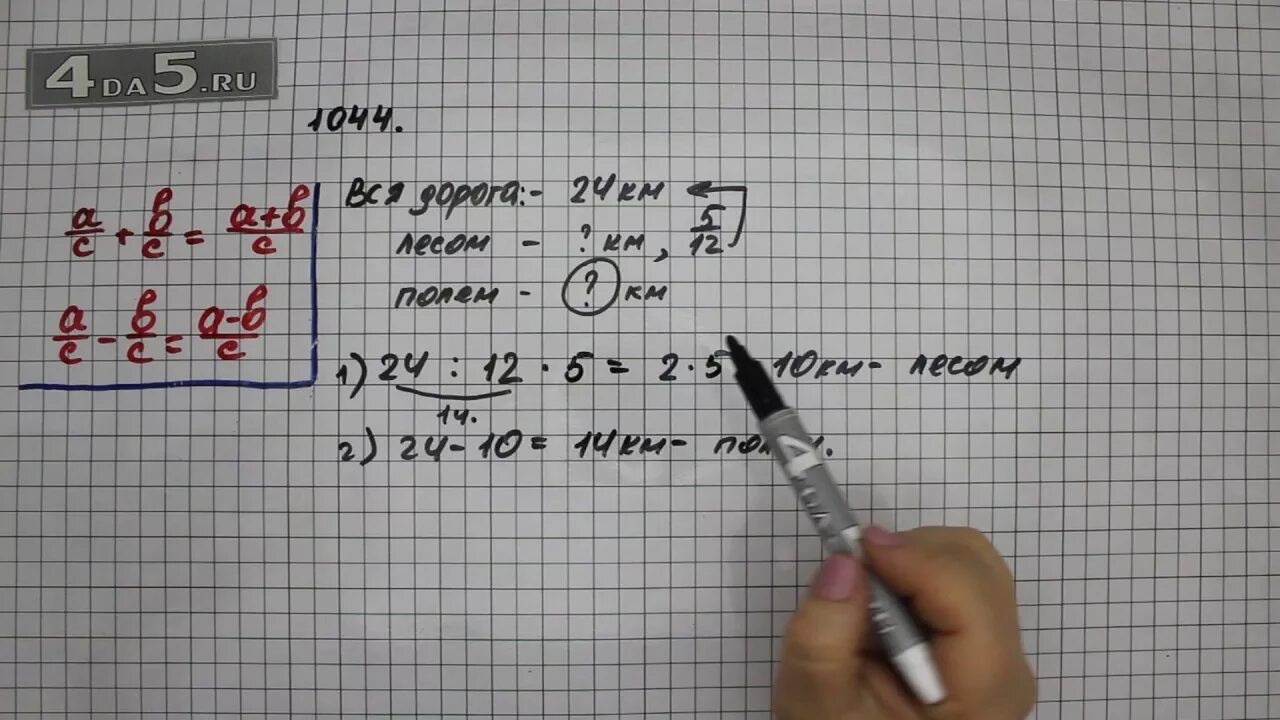 4DA5.RU
1044.
a/c + b/c = a+b/c
a/c - b/c = a-b/c
Вся дорога:- 24 км
лесом - ? км, 5/12
полем - ? км
1) 24 : 12 · 5 = 2 · 5 10км- лесом
1ч.
2) 24 - 10 = 14км-